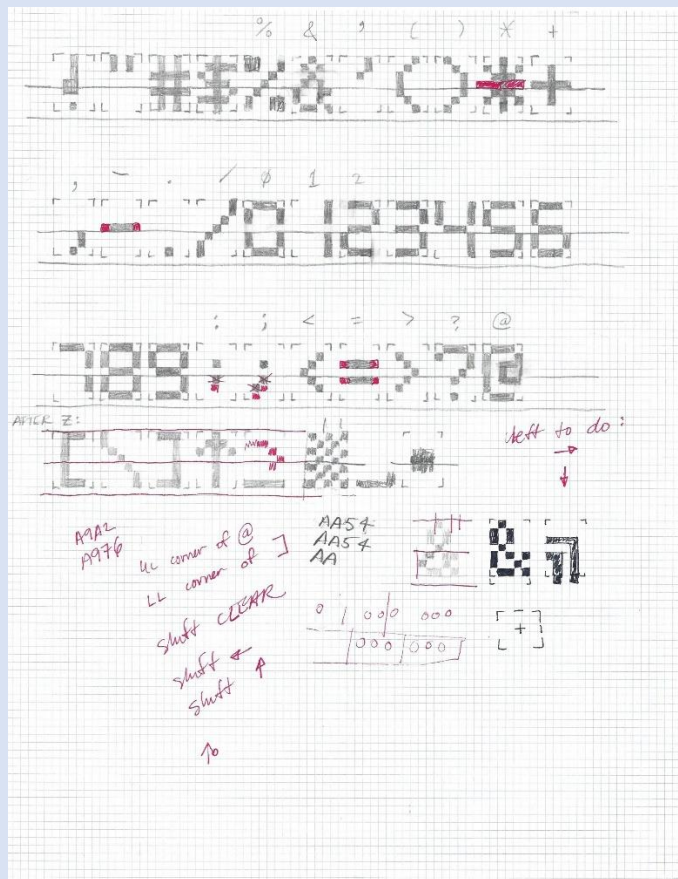 % & ' ( ) * +
! " # $ % & ' ( ) * +
, - . / 0 1 2
, - . / 0 1 2 3 4 5 6
: ; < = > ? @
7 8 9 : ; < = > ? @
AFTER Z:
[ \ ] ↑ _
left to do:
→
↓
A9A2
A976
UL corner of @
LL corner of ]
shift CLEAR
shift ←
shift ↑
↑
AA54
AA54
AA
& ¶
0 1 000 000
000 000
+